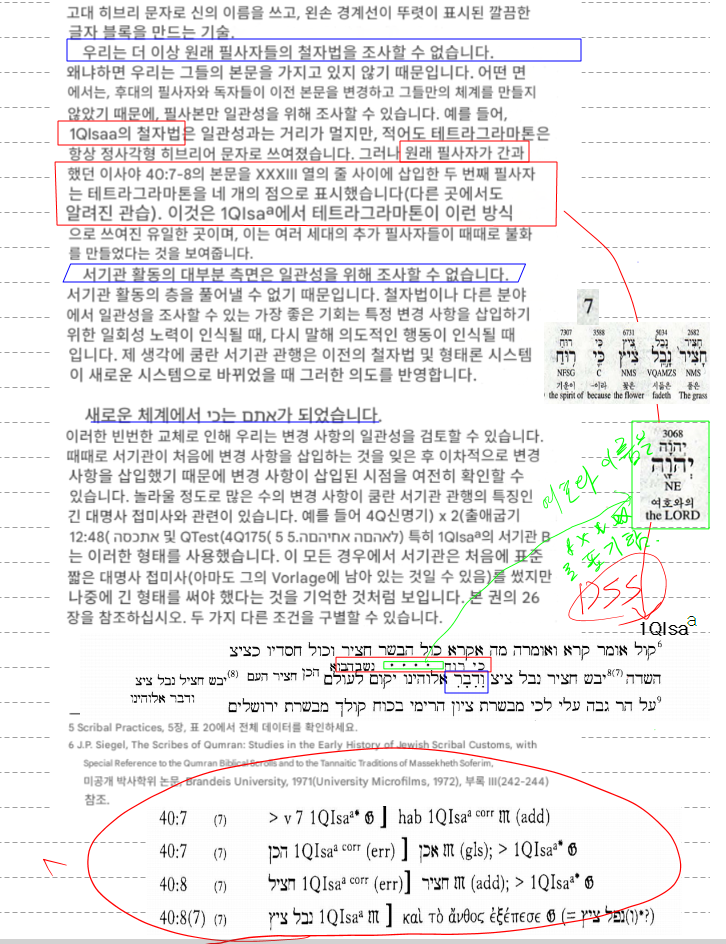 고대 히브리 문자로 신의 이름을 쓰고, 왼손 경계선이 뚜렷이 표시된 깔끔한
글자 블록을 만드는 기술.
우리는 더 이상 원래 필사자들의 철자법을 조사할 수 없습니다.
왜냐하면 우리는 그들의 본문을 가지고 있지 않기 때문입니다. 어떤 면
에서는, 후대의 필사자와 독자들이 이전 본문을 변경하고 그들만의 체계를 만들지
않았기 때문에, 필사본만 일관성을 위해 조사할 수 있습니다. 예를 들어,
1QIsaa의 철자법은 일관성과는 거리가 멀지만, 적어도 테트라그라마톤은
항상 정사각형 히브리어 문자로 쓰여졌습니다. 그러나 원래 필사자가 간과
했던 이사야 40:7-8의 본문을 XXXIII 열의 줄 사이에 삽입한 두 번째 필사자
는 테트라그라마톤을 네 개의 점으로 표시했습니다(다른 곳에서도
알려진 관습). 이것은 1QIsaª에서 테트라그라마톤이 이런 방식
으로 쓰여진 유일한 곳이며, 이는 여러 세대의 추가 필사자들이 때때로 불화
를 만들었다는 것을 보여줍니다.
서기관 활동의 대부분 측면은 일관성을 위해 조사할 수 없습니다.
서기관 활동의 층을 풀어낼 수 없기 때문입니다. 철자법이나 다른 분야
에서 일관성을 조사할 수 있는 가장 좋은 기회는 특정 변경 사항을 삽입하기
위한 일회성 노력이 인식될 때, 다시 말해 의도적인 행동이 인식될 때
입니다. 제 생각에 쿰란 서기관 관행은 이전의 철자법 및 형태론 시스템
이 새로운 시스템으로 바뀌었을 때 그러한 의도를 반영합니다.
7
7307 3588 6731 5034 2682
רוּחַ כִּי צִיץ נָבֵל חָצִיר
רוּחַ כִּי צִיץ נָבֵל חָצִיר
NFSG C NMS VQAMZS NMS
기운이 -이라 꽃은 시들은 풀은
the spirit of because the flower fadeth The grass
새로운 체계에서 כי는 אתם가 되었습니다.
이러한 빈번한 교체로 인해 우리는 변경 사항의 일관성을 검토할 수 있습니다.
때때로 서기관이 처음에 변경 사항을 삽입하는 것을 잊은 후 이차적으로 변경
사항을 삽입했기 때문에 변경 사항이 삽입된 시점을 여전히 확인할 수
있습니다. 놀라울 정도로 많은 수의 변경 사항이 쿰란 서기관 관행의 특징인
긴 대명사 접미사와 관련이 있습니다. 예를 들어 4Q신명기) x 2(출애굽기
12:48( אתכסה 및 QTest(4Q175( 5 5.לאהמה אחיהמה) 특히 1QIsaª의 서기관 B
는 이러한 형태를 사용했습니다. 이 모든 경우에서 서기관은 처음에 표준
짧은 대명사 접미사(아마도 그의 Vorlage에 남아 있는 것일 수 있음)를 썼지만
나중에 긴 형태를 써야 했다는 것을 기억한 것처럼 보입니다. 본 권의 26
장을 참조하십시오. 두 가지 다른 조건을 구별할 수 있습니다.
3068
יְהוָה
יְהוָה
NE
여호와의
the LORD
여호와 이름을
를 표기함.
DSS
1QIsaª
⁶קול אומר קרא ואומרה מה אקרא כול הבשר חציר וכול חסדיו כציצ
כי רוח • • • • נשבהבוא
השדה ⁽⁷⁾⁸יבש חציר נבל ציצ וֹדֹבֹרֹ אלוהינו יקום לעולם הכן חציר העם ⁽⁸⁾יבש חציל נבל ציצ
ודבר אלוהינו
⁹על הר גבה עלי לכי מבשרת ציון הרימי בכוח קולך מבשרת ירושלים
5 Scribal Practices, 5장, 표 20에서 전체 데이터를 확인하세요.
6 J.P. Siegel, The Scribes of Qumran: Studies in the Early History of Jewish Scribal Customs, with
Special Reference to the Qumran Biblical Scrolls and to the Tannaitic Traditions of Massekheth Soferim,
미공개 박사학위 논문, Brandeis University, 1971(University Microfilms, 1972), 부록 III(242-244)
참조.
40:7 (7) > v 7 1QIsaᵃ* 𝔊 ] hab 1QIsaᵃ corr 𝔐 (add)
40:7 (7) הכן 1QIsaᵃ corr (err) ] אכן 𝔐 (gls); > 1QIsaᵃ* 𝔊
40:8 (7) חציל 1QIsaᵃ corr (err) ] חציר 𝔐 (add); > 1QIsaᵃ* 𝔊
40:8(7) (7) נבל ציץ 1QIsaᵃ 𝔐 ] καὶ τὸ ἄνθος ἐξέπεσε 𝔊 (= נפל ציץ(ו)*?)